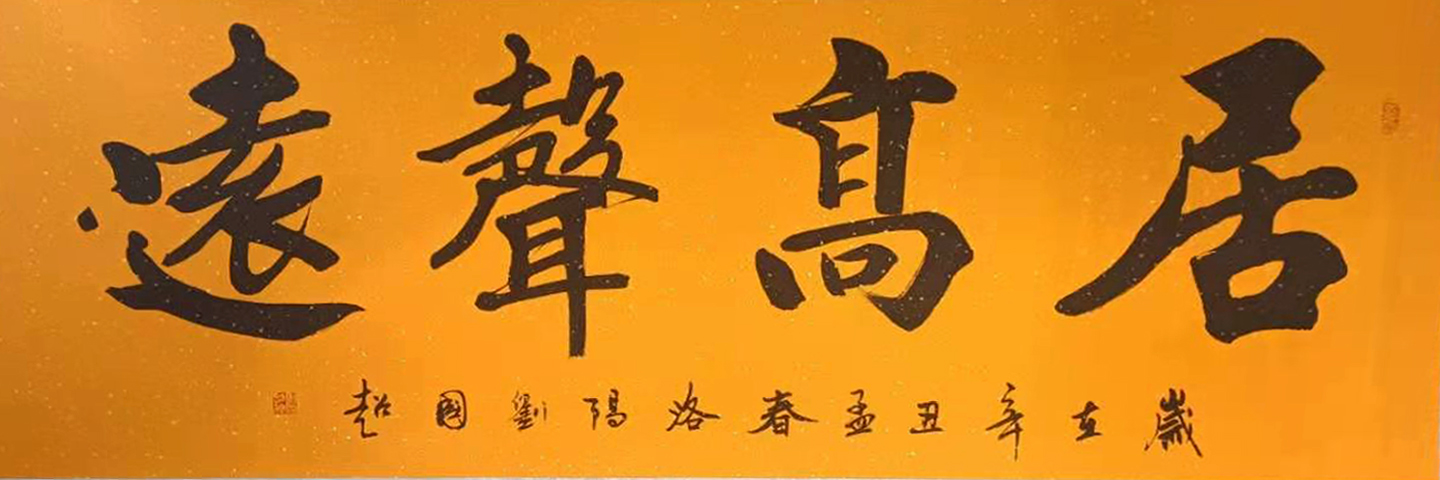 居髙聲遠
歲在辛丑孟春洛陽劉國超